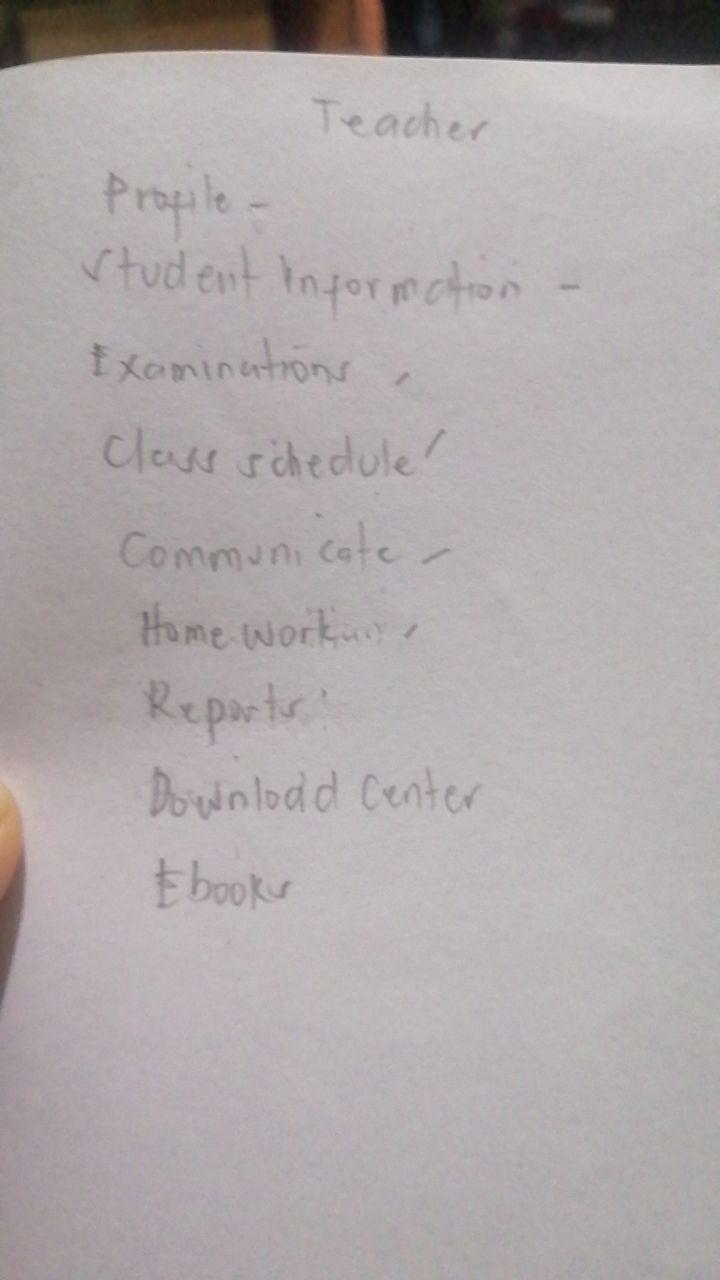 Teacher
Profile -
Student Information -
Examinations
Class schedule
Communicate -
Home work
Reports
Download Center
Ebooks